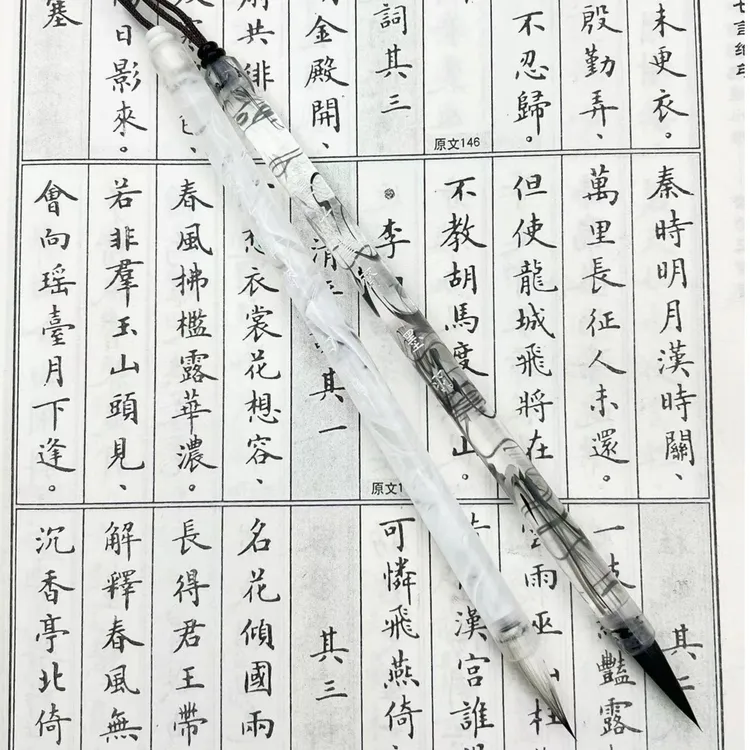 未更衣。
殷勤弄、
不忍歸。
詞其三
原文146
金殿開、
共徘
日影來。
塞
秦時明月漢時關、
萬里長征人未還。
但使龍城飛將在
不教胡馬度山。
李
清其一
想衣裳花想容、
春風拂檻露華濃。
若非羣玉山頭見、
會向瑶臺月下逢。
原文1
其二
一艷露
雨巫枉
漢宮誰
可憐飛燕倚
其三
名花傾國兩
長得君王帶
解釋春風無
沉香亭北倚
墨